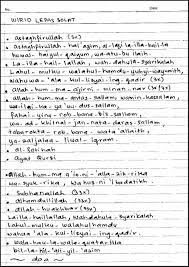 No.
Date:
WIRID LEPAS SOLAT
• Astaghfirullah (3x)
• Astaghfirullah-hal'azim, al-lazi-la-ila-ha-il-la
huwal-haiyul-qaiyum, wa-atu-bu-ilaih.
• Lai-ila-ha-illallah, wah-dahula-syarikalah
Lahul-mulku-walahul-hamdu-yuhyi-wayumit,
wahuwa-'ala-kul-lisyai-ing-qadir (3x)
• Allah-hum-ma-ajirni-minan-nar (3x)
• Allah-hum-ma-antas-salam, waminkassalam,
wa-ilai-ka-ya'u-dus-salam,
fahai-yina-rob-bana-bis-salam,
wa-ad-khilnal-jan-nata-daros-salam,
tabarok-ta-rob-bana-wata'alaith,
ya-zaljalali-wal-iqram.
• Al-Fatihah
• Ayat Qursi
• Allah-hum-ma-a'in-ni-'ala-zik-rika
wa-syuk-rika, wa-husni-'ibadatik.
• Subhanallah (33x)
• Alhamdulillah (33x)
• Allahu Akbar (33x)
• Laila-hailallah, Wahdahula-Syarikalah
Lahul-mulku-walahulhamdu
wahuwa-'ala-kul-lisyai-ing-qadir.
• Wala-hau-la-wala-quwwatailla
bil-la-hil-'ali-yil-'azim
~ doa ~